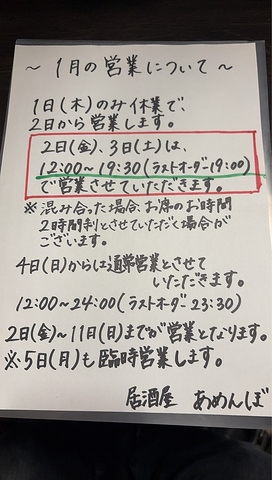 ～1月の営業について～
1日(木)のみ休業で、
2日から営業します。
2日(金)、3日(土)は、
12:00～19:30(ラストオーダー19:00)
で営業させていただきます。
※混み合った場合、お席のお時間
2時間制とさせていただく場合が
ございます。
4日(日)からは通常営業とさせて
いただきます。
12:00～24:00(ラストオーダー23:30)
2日(金)～11日(日)までが営業となります。
※5日(月)も臨時営業します。
居酒屋 あめんぼ